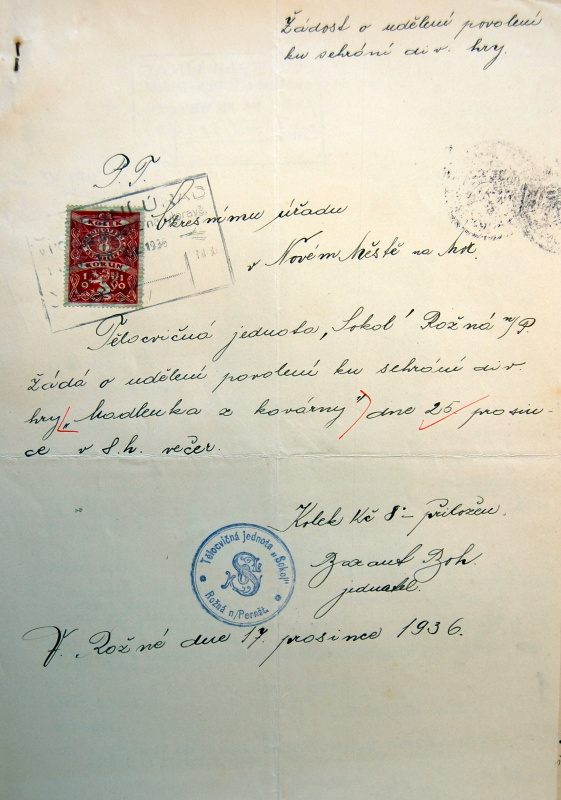 Žádost o udělení povolení
ku sehrání div. hry.
P. T.
Okresnímu úřadu
v Novém Městě na Mor.
Tělocvičná jednota „Sokol" Rožná n/P.
žádá o udělení povolení ku sehrání div.
hry „Madlenka z kovárny" dne 25 prosin-
ce v 8.h. večer.
Kolek Kč 8·– přiložen.
Boh.
jednatel.
Tělocvičná jednota „Sokol"
Rožná n/Pernšt.
V. Rožné dne 17. prosince 1936.
KOLEK
8
KORUN
1936